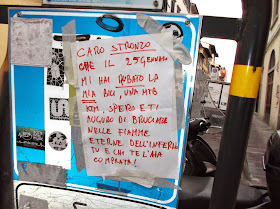 CARO STRONZO
CHE IL 25 GENNAIO
MI HAI RUBATO LA
MIA BICI, UNA MTB
KTM, SPERO E TI
AUGURO DI BRUCIARE
NELLE FIAMME
ETERNE DELL'INFERNO
TU E CHI TE L'HA
COMPRATA!